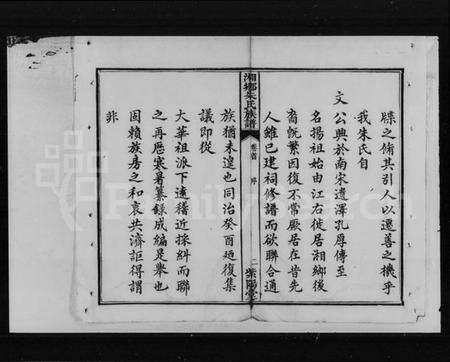 牒之脩其引人以遷善之機乎
我朱氏自
文
公興於南宋遺澤孔厚傳至
名揚祖始由江右徙居湘鄉後
裔旣繁因復不常厥居在昔先
人雖已建祠修譜而欲聯合通
湘鄉朱氏族譜
卷首
序
二
紫陽堂
族猶未遑也同治癸酉廼復集
議即從
大華祖派下遠稽近採糾而聯
之再歷寒暑纂錄成編是舉也
固賴族房之和衷共濟詎得謂
非
FamilySearch